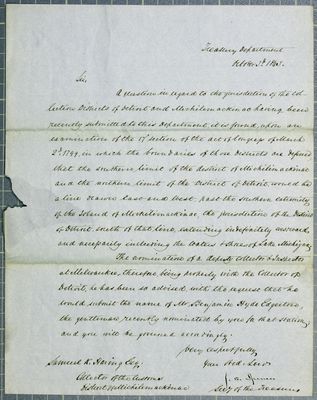 Treasury Department
October 3d. 1843.
Sir,
A question in regard to the jurisdiction of the Col-
lection Districts of Detroit and Michilimackinac having been
recently submitted to this Department, it is found, upon an
examination of the 17th section of the act of Congress of March
2d. 1799, in which the boundaries of those Districts are defined
that the southern limit of the district of Michilimackinac
and the northern limit of the District of Detroit would be
a line drawn east and west past the southern extremity
of the Island of Michilimackinac, the jurisdiction of the District
of Detroit south of that line, extending indefinitely westward,
and necessarily including the waters & shores of Lake Michigan.
The nomination of a deputy Collector & Inspector
at Milwaukie, therefore, being properly with the Collector of
Detroit, he has been so advised with the request that he
would submit the name of Mr. Benjamin Hyde Edgerton,
the gentleman recently nominated by you for that station,
and you will be governed accordingly.
Very respectfully,
Your Obd. Servt.
Secy. of the Treasury
Samuel K. Haring Esq.
Collector of the Customs
District of Michilimackinac